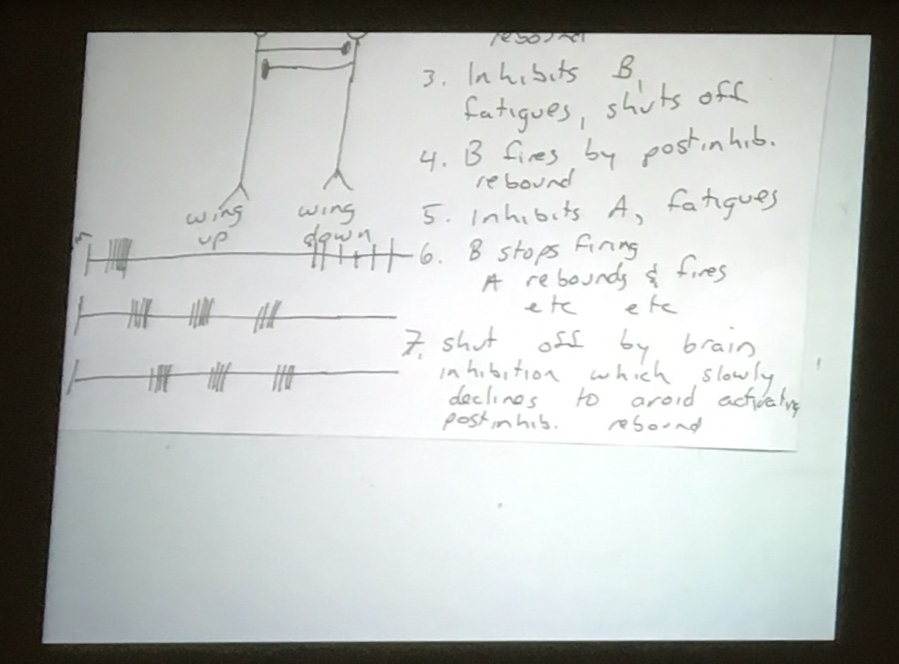 rebound
3. Inhibits B,
fatigues, shuts off
4. B fires by postinhib.
rebound
5. Inhibits A, fatigues
6. B stops firing
A rebounds & fires
etc etc
7. shut off by brain
inhibition which slowly
declines to avoid activating
postinhib. rebound
wing up
wing down